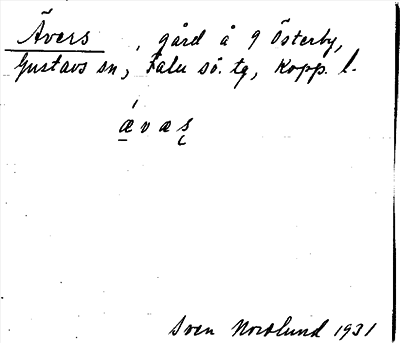 Ävers , gård å 9 Österby,
Gustavs sn, Falu sö. tg, Kopp. l.
ævæs
Sven Norslund 1931